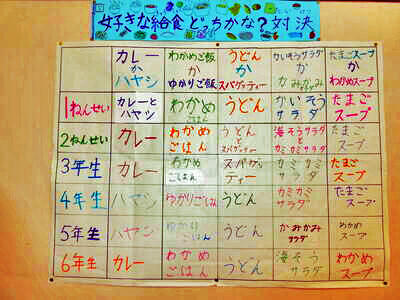 好きな給食どっちかな?対決
カレー
か
ハヤシ
わかめご飯
か
ゆかりご飯
うどん
か
スパゲッティー
かいそうサラダ
か
かみかみサラダ
たまごスープ
か
わかめスープ
1ねんせい
カレーと
ハヤシ
わかめ
ごはん
うどん
かいそう
サラダ
たまご
スープ
2ねんせい
カレー
わかめ
ごはん
うどん
と
スパゲッティー
海そうサラダ
と
カミカミサラダ
たまご
スープ
3年生
カレー
わかめ
ごはん
スパゲッ
ティー
カミカミ
サラダ
たまご
スープ
4年生
ハヤシ
ゆかりごはん
うどん
カミカミ
サラダ
たまご
スープ
5年生
ハヤシ
ゆかり
ごはん
うどん
かみかみ
サラダ
わかめ
スープ
6年生
カレー
わかめ
ごはん
うどん
海そう
サラダ
わかめ
スープ